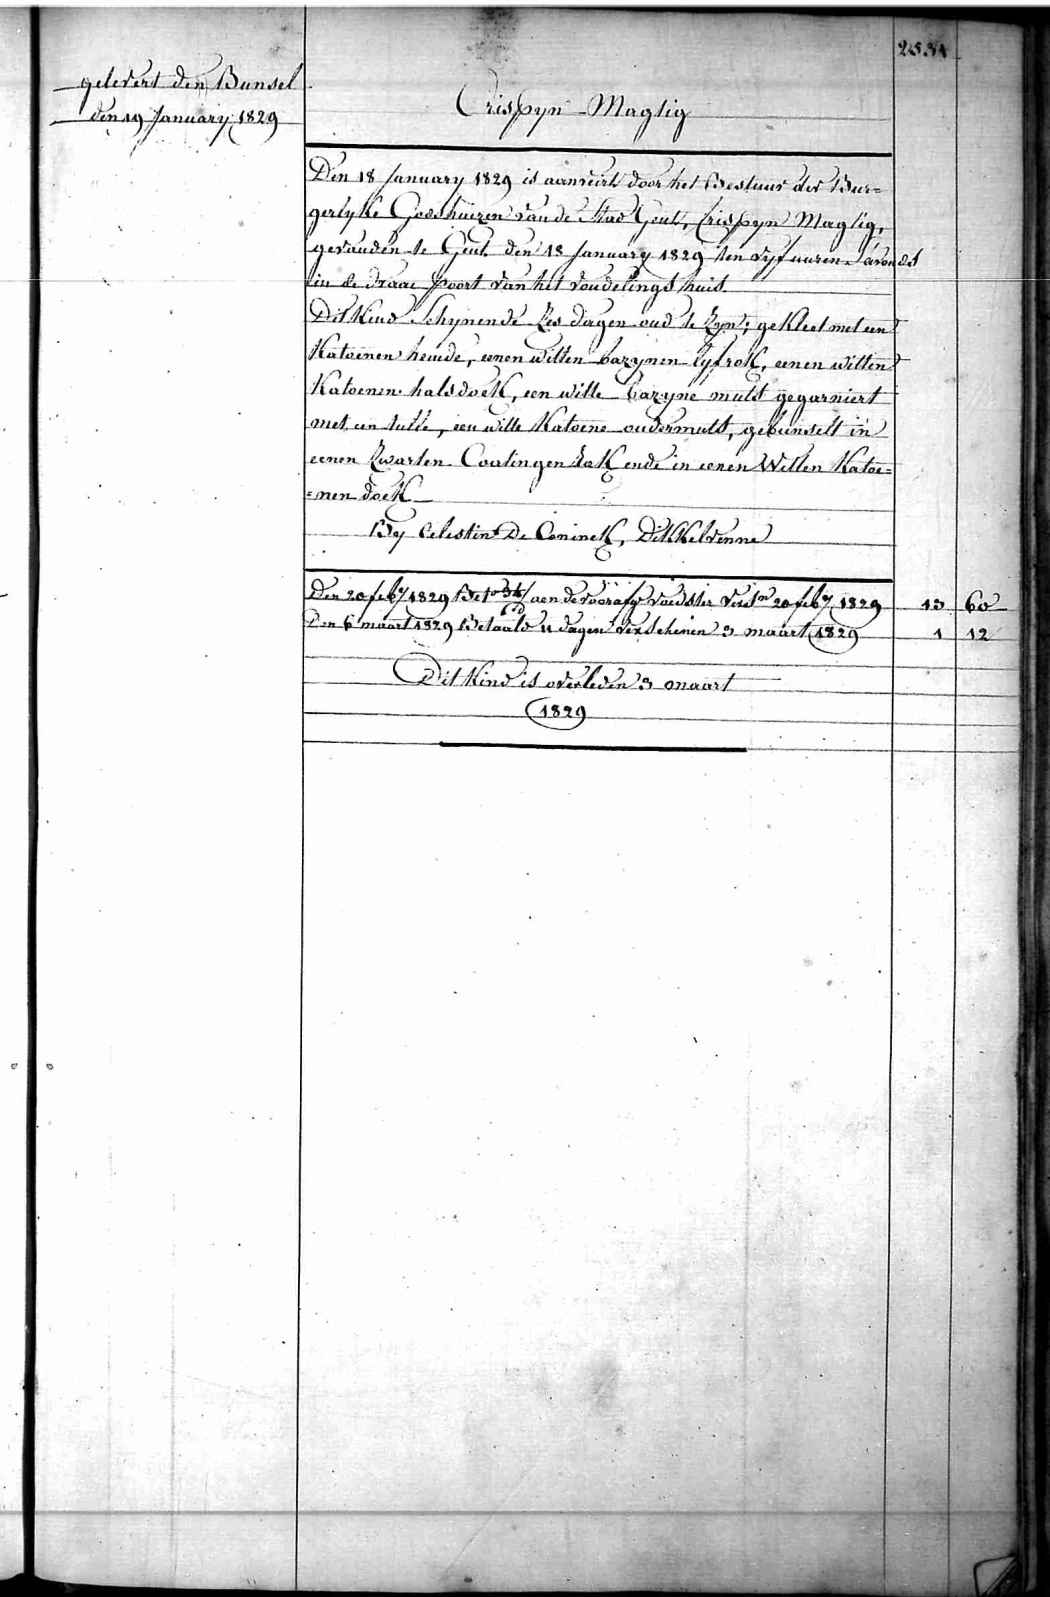 2534
gelevert den Bunsel
den 19 January 1829
Crispyn Magtig
Den 18 January 1829 is aanveirt door het Bestuur der Bur=
gerlyke Godshuizen van de Stad Gent, Crispyn Magtig,
gevonden te Gent den 18 January 1829 ten vyf uuren s'avonds
in de draae poort van het vondelingshuis
Dit Kind Schynende Zes dagen oud te Zyn; gekleet met een
Katoenen hemde, eenen witten bazynen lyfrok, eenen witten
Katoenen halsdoek, een witte bazyne muts gegarniert
met een tulle, een witte Katoene ondermuts, gebunselt in
eenen Zwarten Coatingen Rok ende in eenen Witten Katoe=
=nen doek
By Celestin De Coninck, Dikkelvenne
Den 20 feby 1829 Bet aen de voorafg voedster 20 feby 1829 13 60
Den 6 maart 1829 Betaald 11 dagen verschenen 3 maart 1829 1 12
Dit Kind is overleden 3 maart
1829